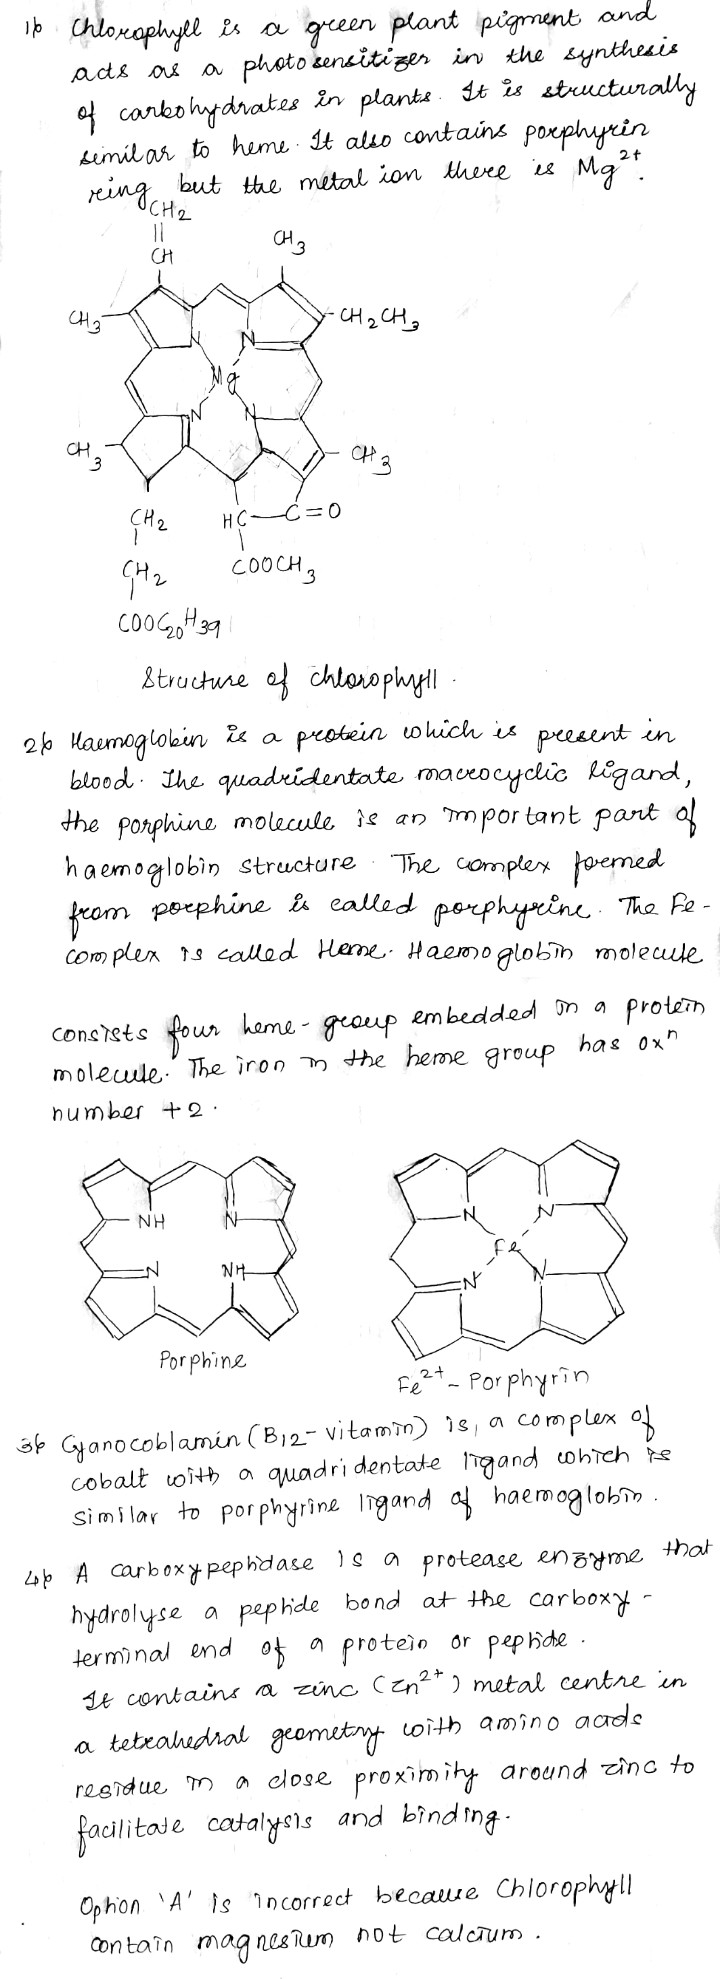 1) Chlorophyll is a green plant pigment and
acts as a photosensitizer in the synthesis
of carbohydrates in plants. It is structurally
similar to heme. It also contains porphyrin
ring but the metal ion there is Mg²⁺.
CH₂
||
CH
CH₃
CH₃
CH₂CH₃
N
N
Mg
N
N
CH₃
CH₃
CH₂
HC
C=O
CH₂
COOCH₃
COOC₂₀H₃₉
Structure of chlorophyll.
2) Haemoglobin is a protein which is present in
blood. The quadridentate macrocyclic ligand,
the porphine molecule is an important part of
haemoglobin structure. The complex formed
from porphine is called porphyrine. The Fe-
complex is called Heme. Haemoglobin molecule
consists four heme-group embedded in a protein
molecule. The iron in the heme group has oxⁿ
number +2.
NH
N
N
NH
Porphine
N
N
Fe
N
N
Fe²⁺- Porphyrin
3) Cyanocoblamin (B₁₂- vitamin) is, a complex of
cobalt with a quadridentate ligand which is
similar to porphyrine ligand of haemoglobin.
4) A carboxypeptidase is a protease enzyme that
hydrolyse a peptide bond at the carboxy-
terminal end of a protein or peptide.
It contains a zinc (Zn²⁺) metal centre in
a tetrahedral geometry with amino acids
residue in a close proximity around zinc to
facilitate catalysis and binding.
Option 'A' is incorrect because Chlorophyll
contain magnesium not calcium.